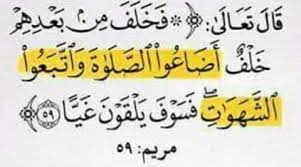 قال تعالى: ﴿ ۞ فَخَلَفَ مِنۢ بَعْدِهِمْ
خَلْفٌ أَضَاعُوا۟ ٱلصَّلَوٰةَ وَٱتَّبَعُوا۟
ٱلشَّهَوَٰتِ ۖ فَسَوْفَ يَلْقَوْنَ غَيًّا ﴿٥٩﴾ ﴾
مريم: ٥٩